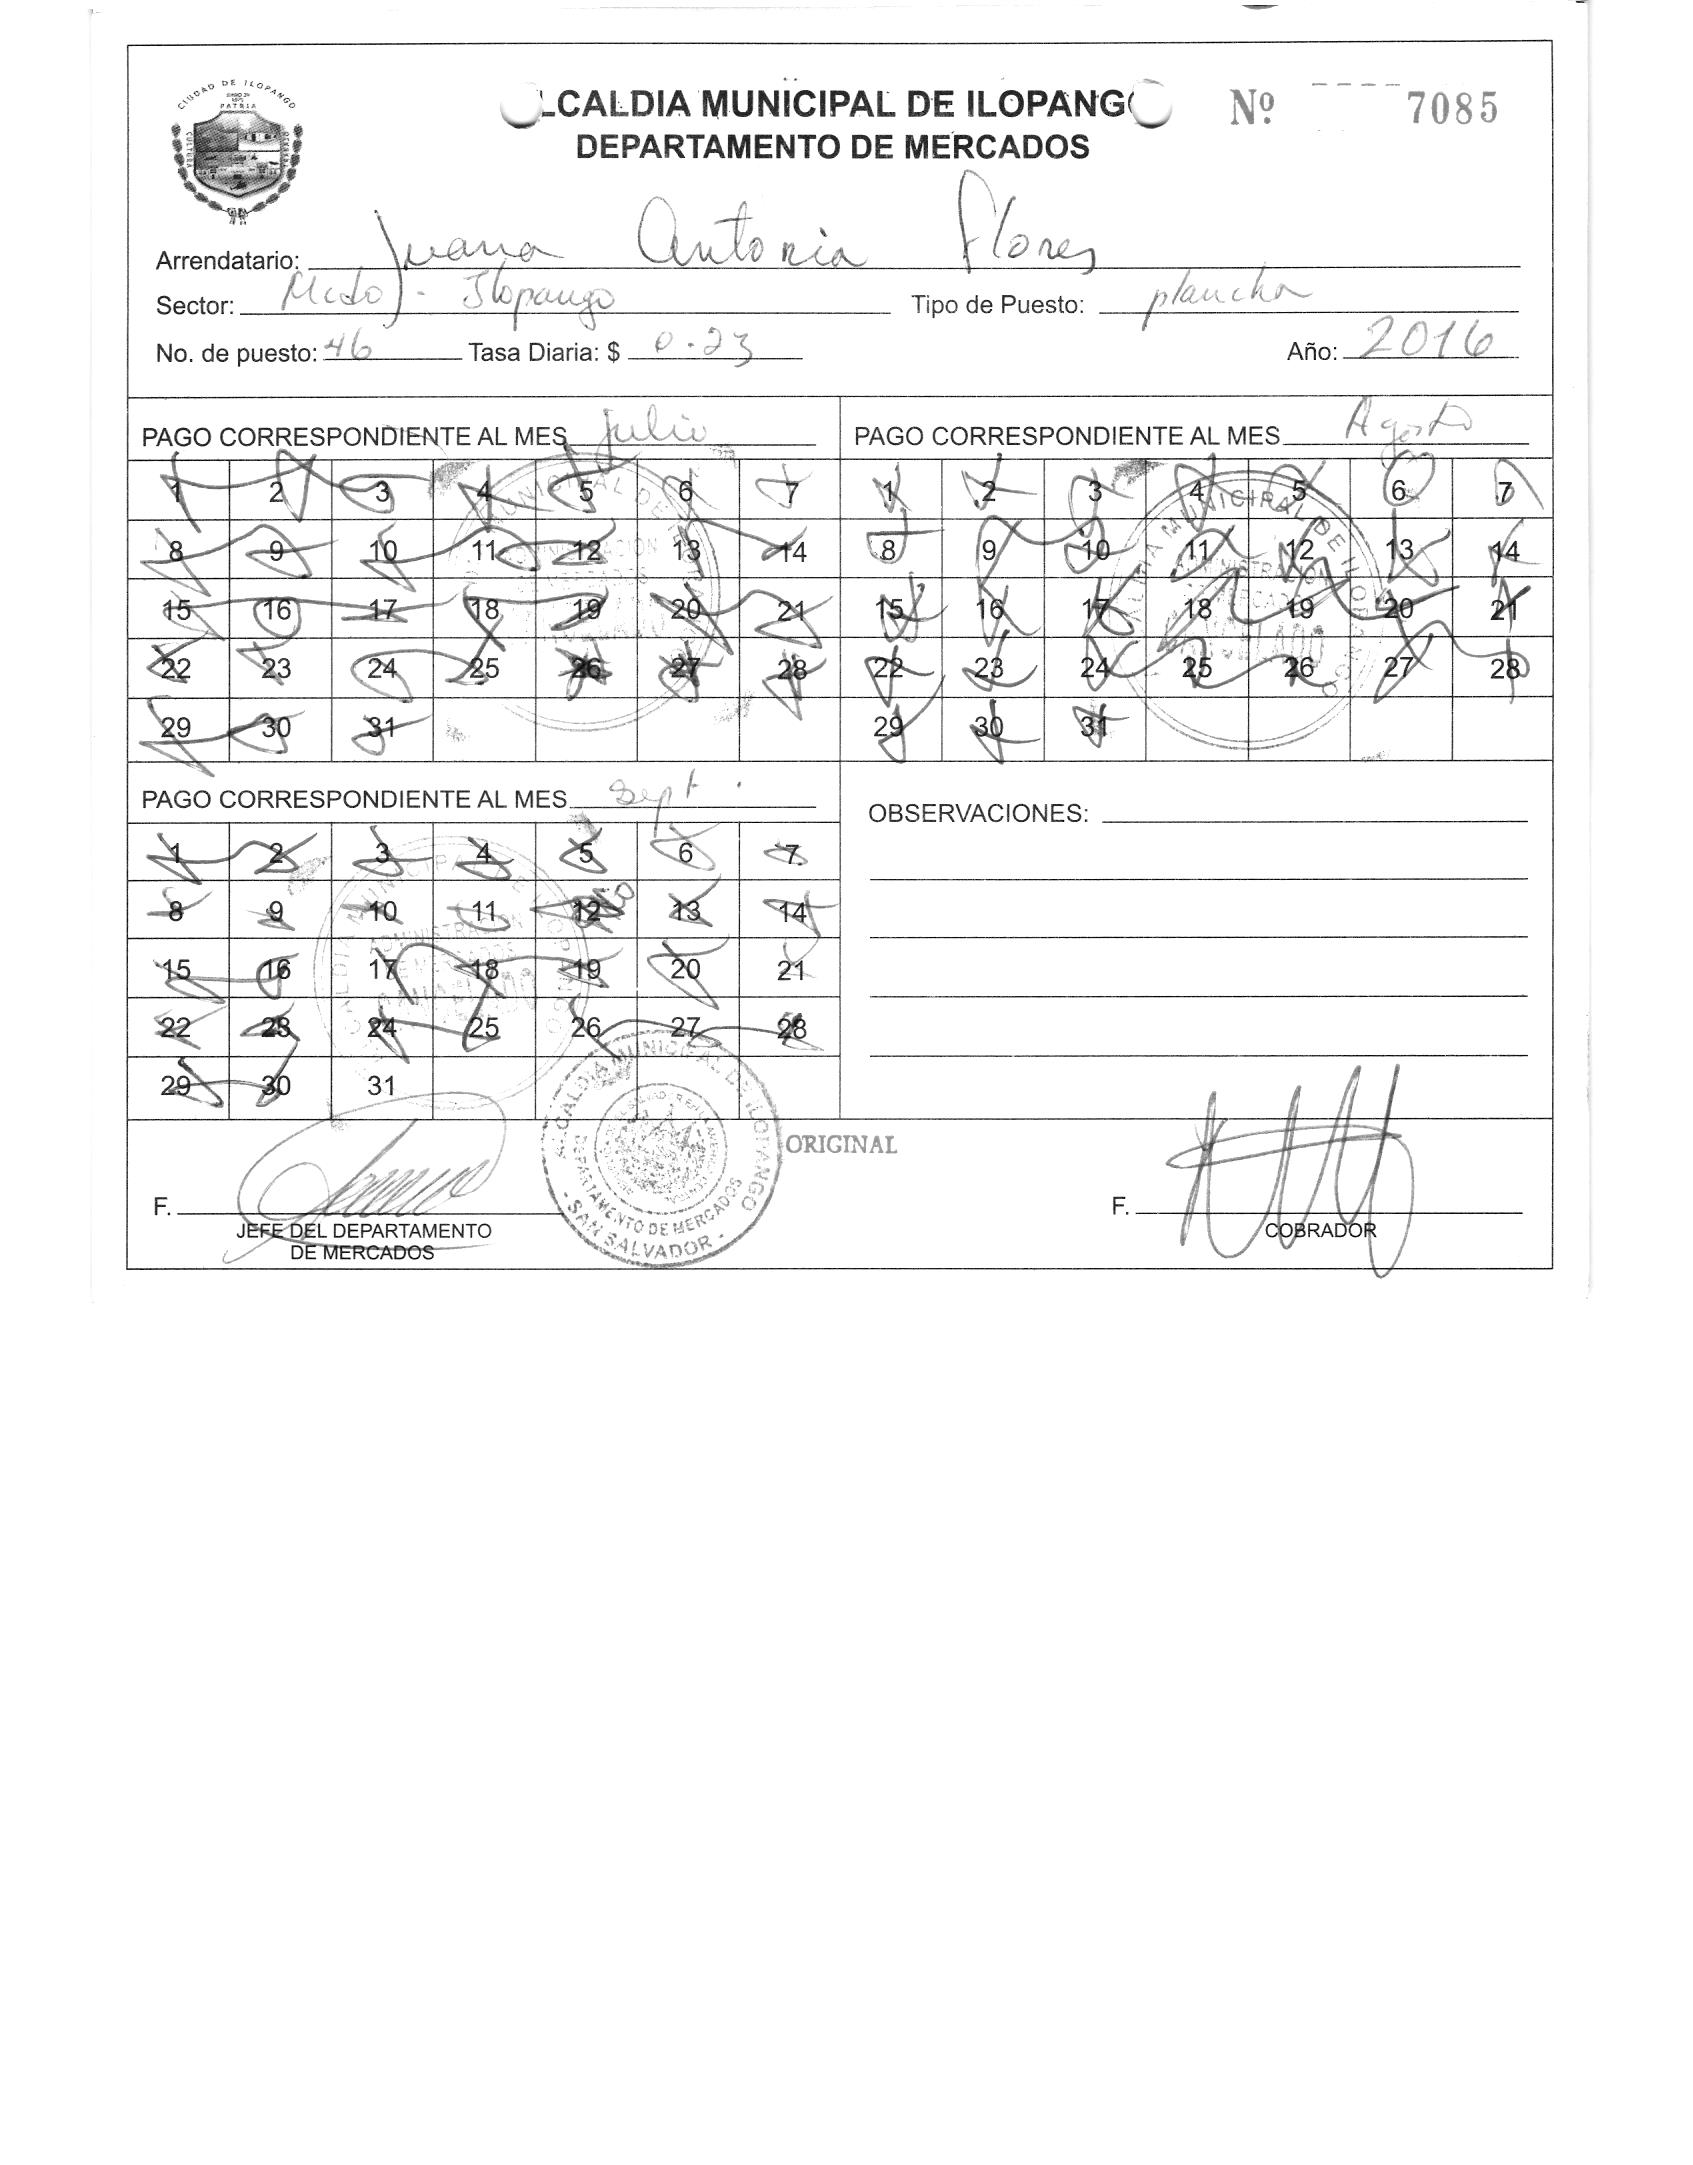 CIUDAD DE ILOPANGO
PATRIA
CULTURA
LCALDIA MUNICIPAL DE ILOPANGO
Nº 7085
DEPARTAMENTO DE MERCADOS
Arrendatario: Juana Antonia Flores
Sector: Mcdo - Ilopango Tipo de Puesto: plancha
No. de puesto: 46 Tasa Diaria: $ 0.23 Año: 2016
PAGO CORRESPONDIENTE AL MES Julio
1 2 3 4 5 6 7
8 9 10 11 12 13 14
15 16 17 18 19 20 21
22 23 24 25 26 27 28
29 30 31
PAGO CORRESPONDIENTE AL MES Agosto
1 2 3 4 5 6 7
8 9 10 11 12 13 14
15 16 17 18 19 20 21
22 23 24 25 26 27 28
29 30 31
PAGO CORRESPONDIENTE AL MES Sept.
1 2 3 4 5 6 7
8 9 10 11 12 13 14
15 16 17 18 19 20 21
22 23 24 25 26 27 28
29 30 31
OBSERVACIONES:
ALCALDIA MUNICIPAL DE ILOPANGO
DEPARTAMENTO DE MERCADOS
- SAN SALVADOR -
ORIGINAL
F.
JEFE DEL DEPARTAMENTO
DE MERCADOS
F.
COBRADOR